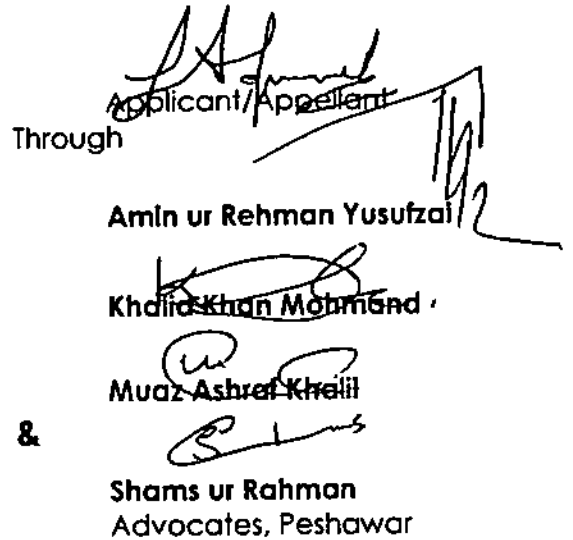 Applicant/Appellant
Through
Amin ur Rehman Yusufzai
Khalid Khan Mohmand
Muaz Ashraf Khalil
&
Shams ur Rahman
Advocates, Peshawar